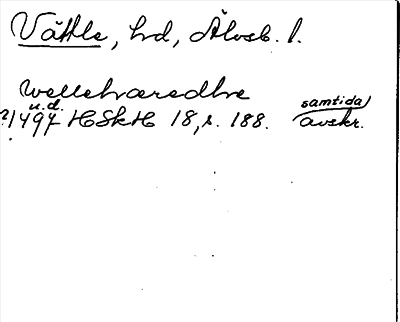 Vättle, hd, Älvsb. l.
Wellehæredhe
u.d. samtida
?1497 HSkH 18, s. 188. avskr.